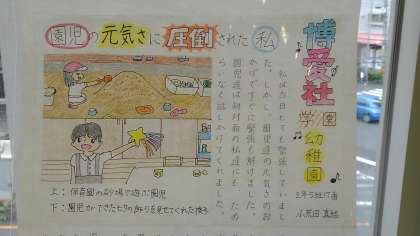 園児の元気さに圧倒された私
博愛社
学園
幼稚園
3年5組17番
小荒田 真結
私は当日とても緊張していまし
た。しかし、園児達の元気さのお
かげですぐに緊張も解けました。
園児達は初対面の私達にも、ため
らいなく話しかけてくれました。
上：保育園の砂場で遊ぶ園児
下：園児ができた七夕の飾りを見せてくれた様子